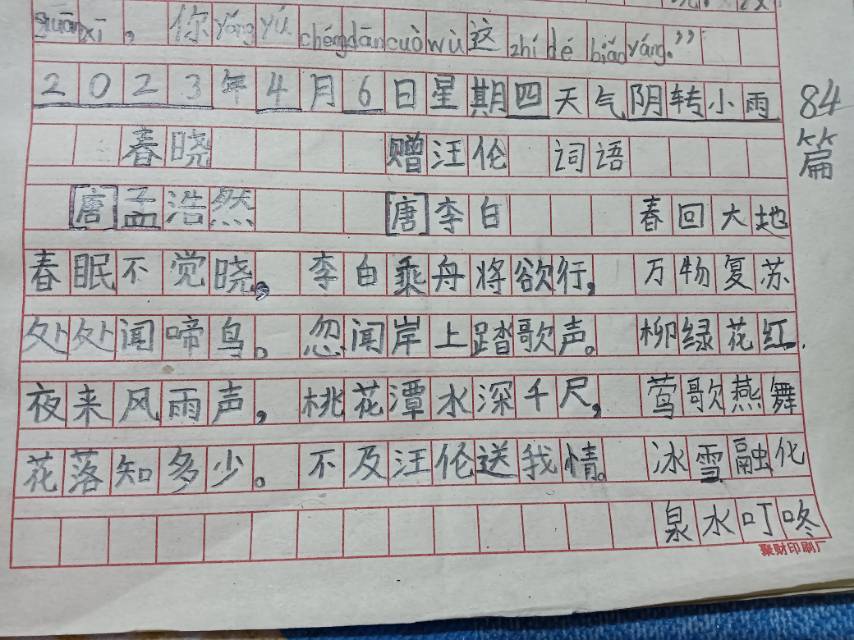 guānxī，你yǎngyú chéngdāncuòwù这zhídé biǎoyáng.”
2023年4月6日星期四天气阴转小雨
84篇
春晓 赠汪伦 词语
[唐]孟浩然 [唐]李白 春回大地
春眠不觉晓， 李白乘舟将欲行， 万物复苏
处处闻啼鸟。 忽闻岸上踏歌声。 柳绿花红.
夜来风雨声， 桃花潭水深千尺， 莺歌燕舞
花落知多少。 不及汪伦送我情。 冰雪融化
泉水叮咚
聚财印刷厂